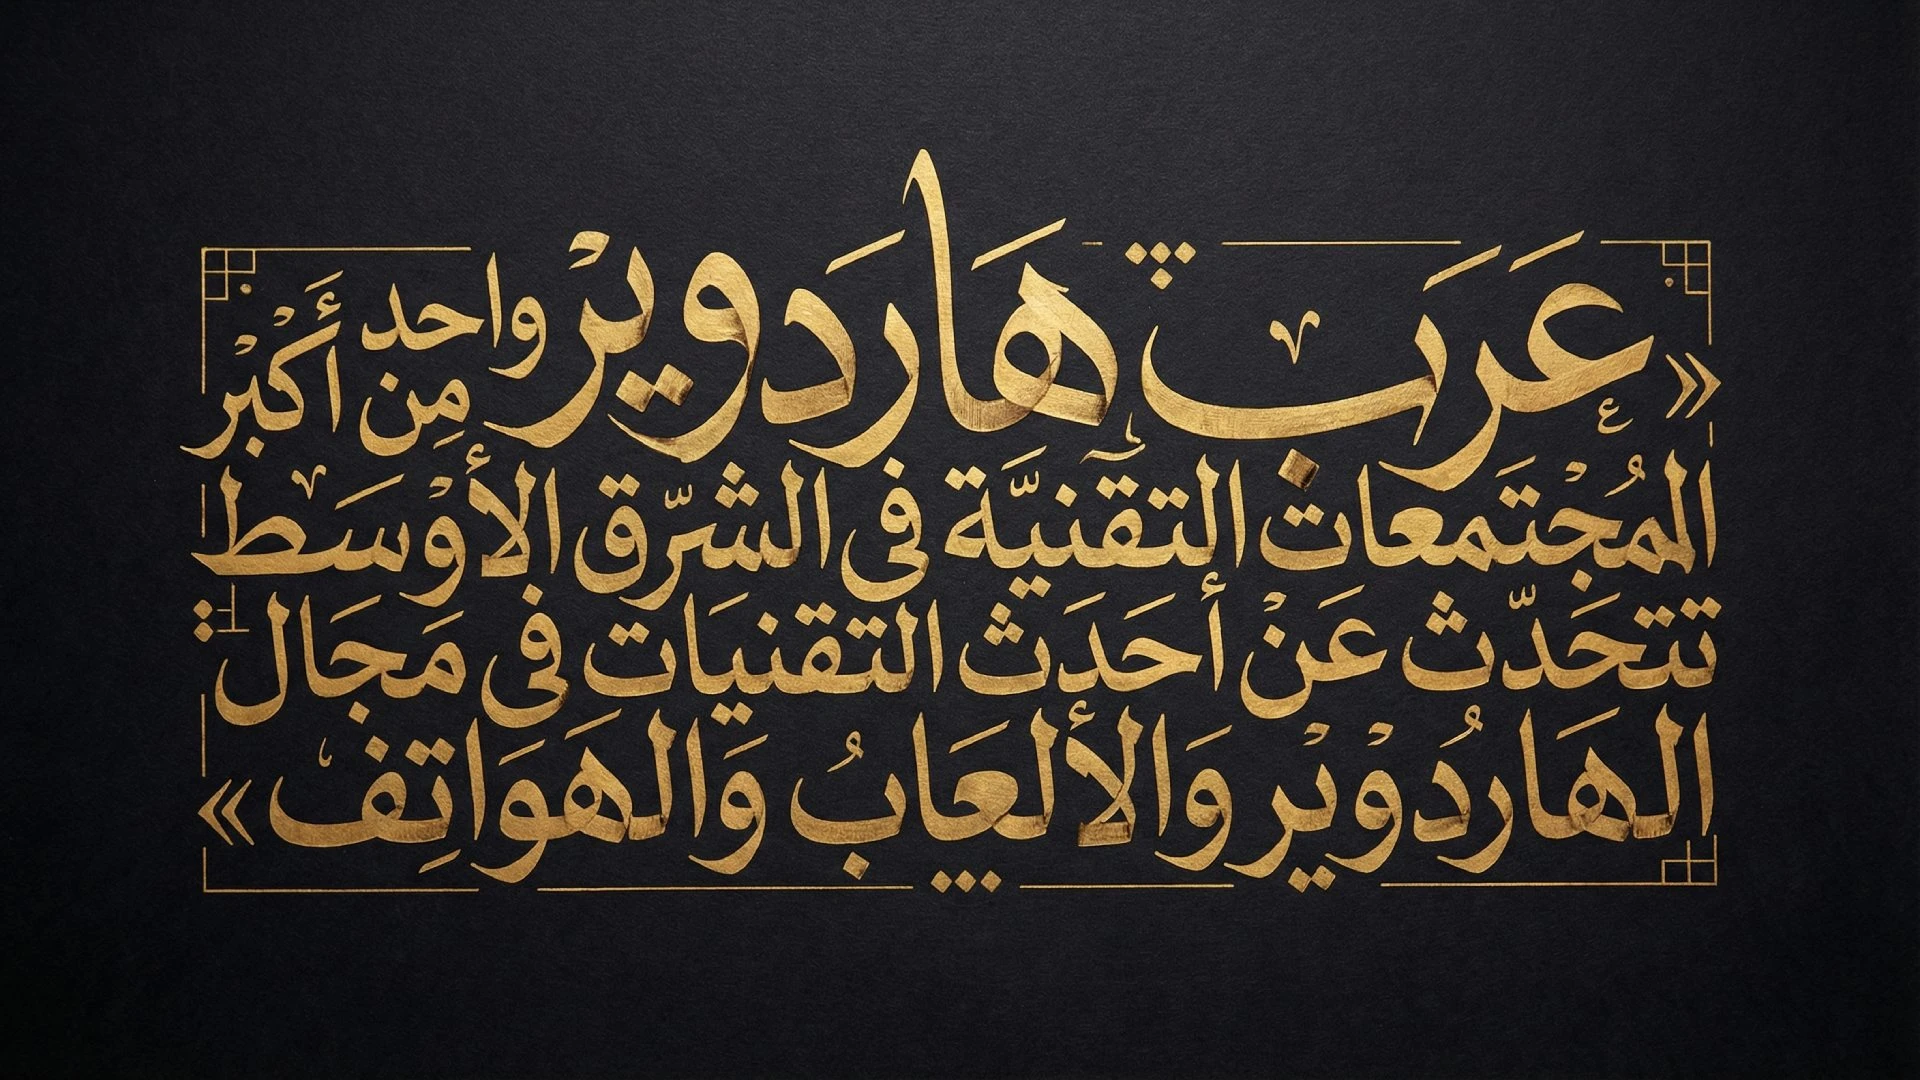 «عَرَب هَاردَوير واحد مِن أَكْبْر
المُجْتَمعات التقنيَّة في الشرّق الأوْسَط
تتحَدّث عَنْ أحَدَث التقنيَات في مَجَال
الهَاردُوْيْر وَالألعَابُ وَالهَوَاتِف»